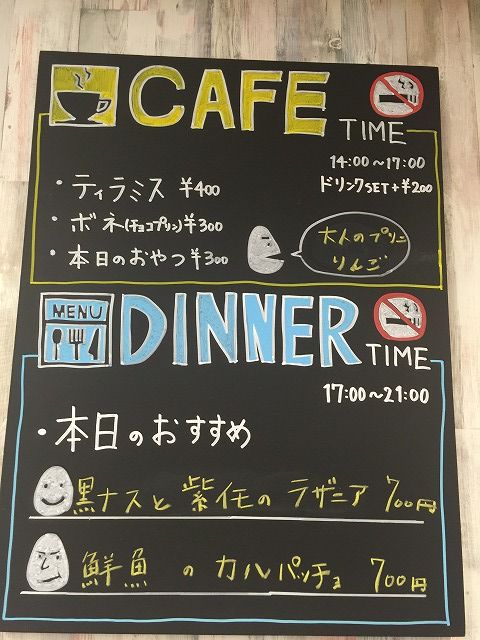 CAFE TIME
14:00~17:00
ドリンクSET+¥200
・ティラミス ¥400
・ボネ(チョコプリン)¥300
・本日のおやつ¥300
大人のプリン
りんご
MENU
DINNER TIME
17:00~21:00
・本日のおすすめ
黒ナスと紫イモのラザニア 700円
鮮魚のカルパッチョ 700円